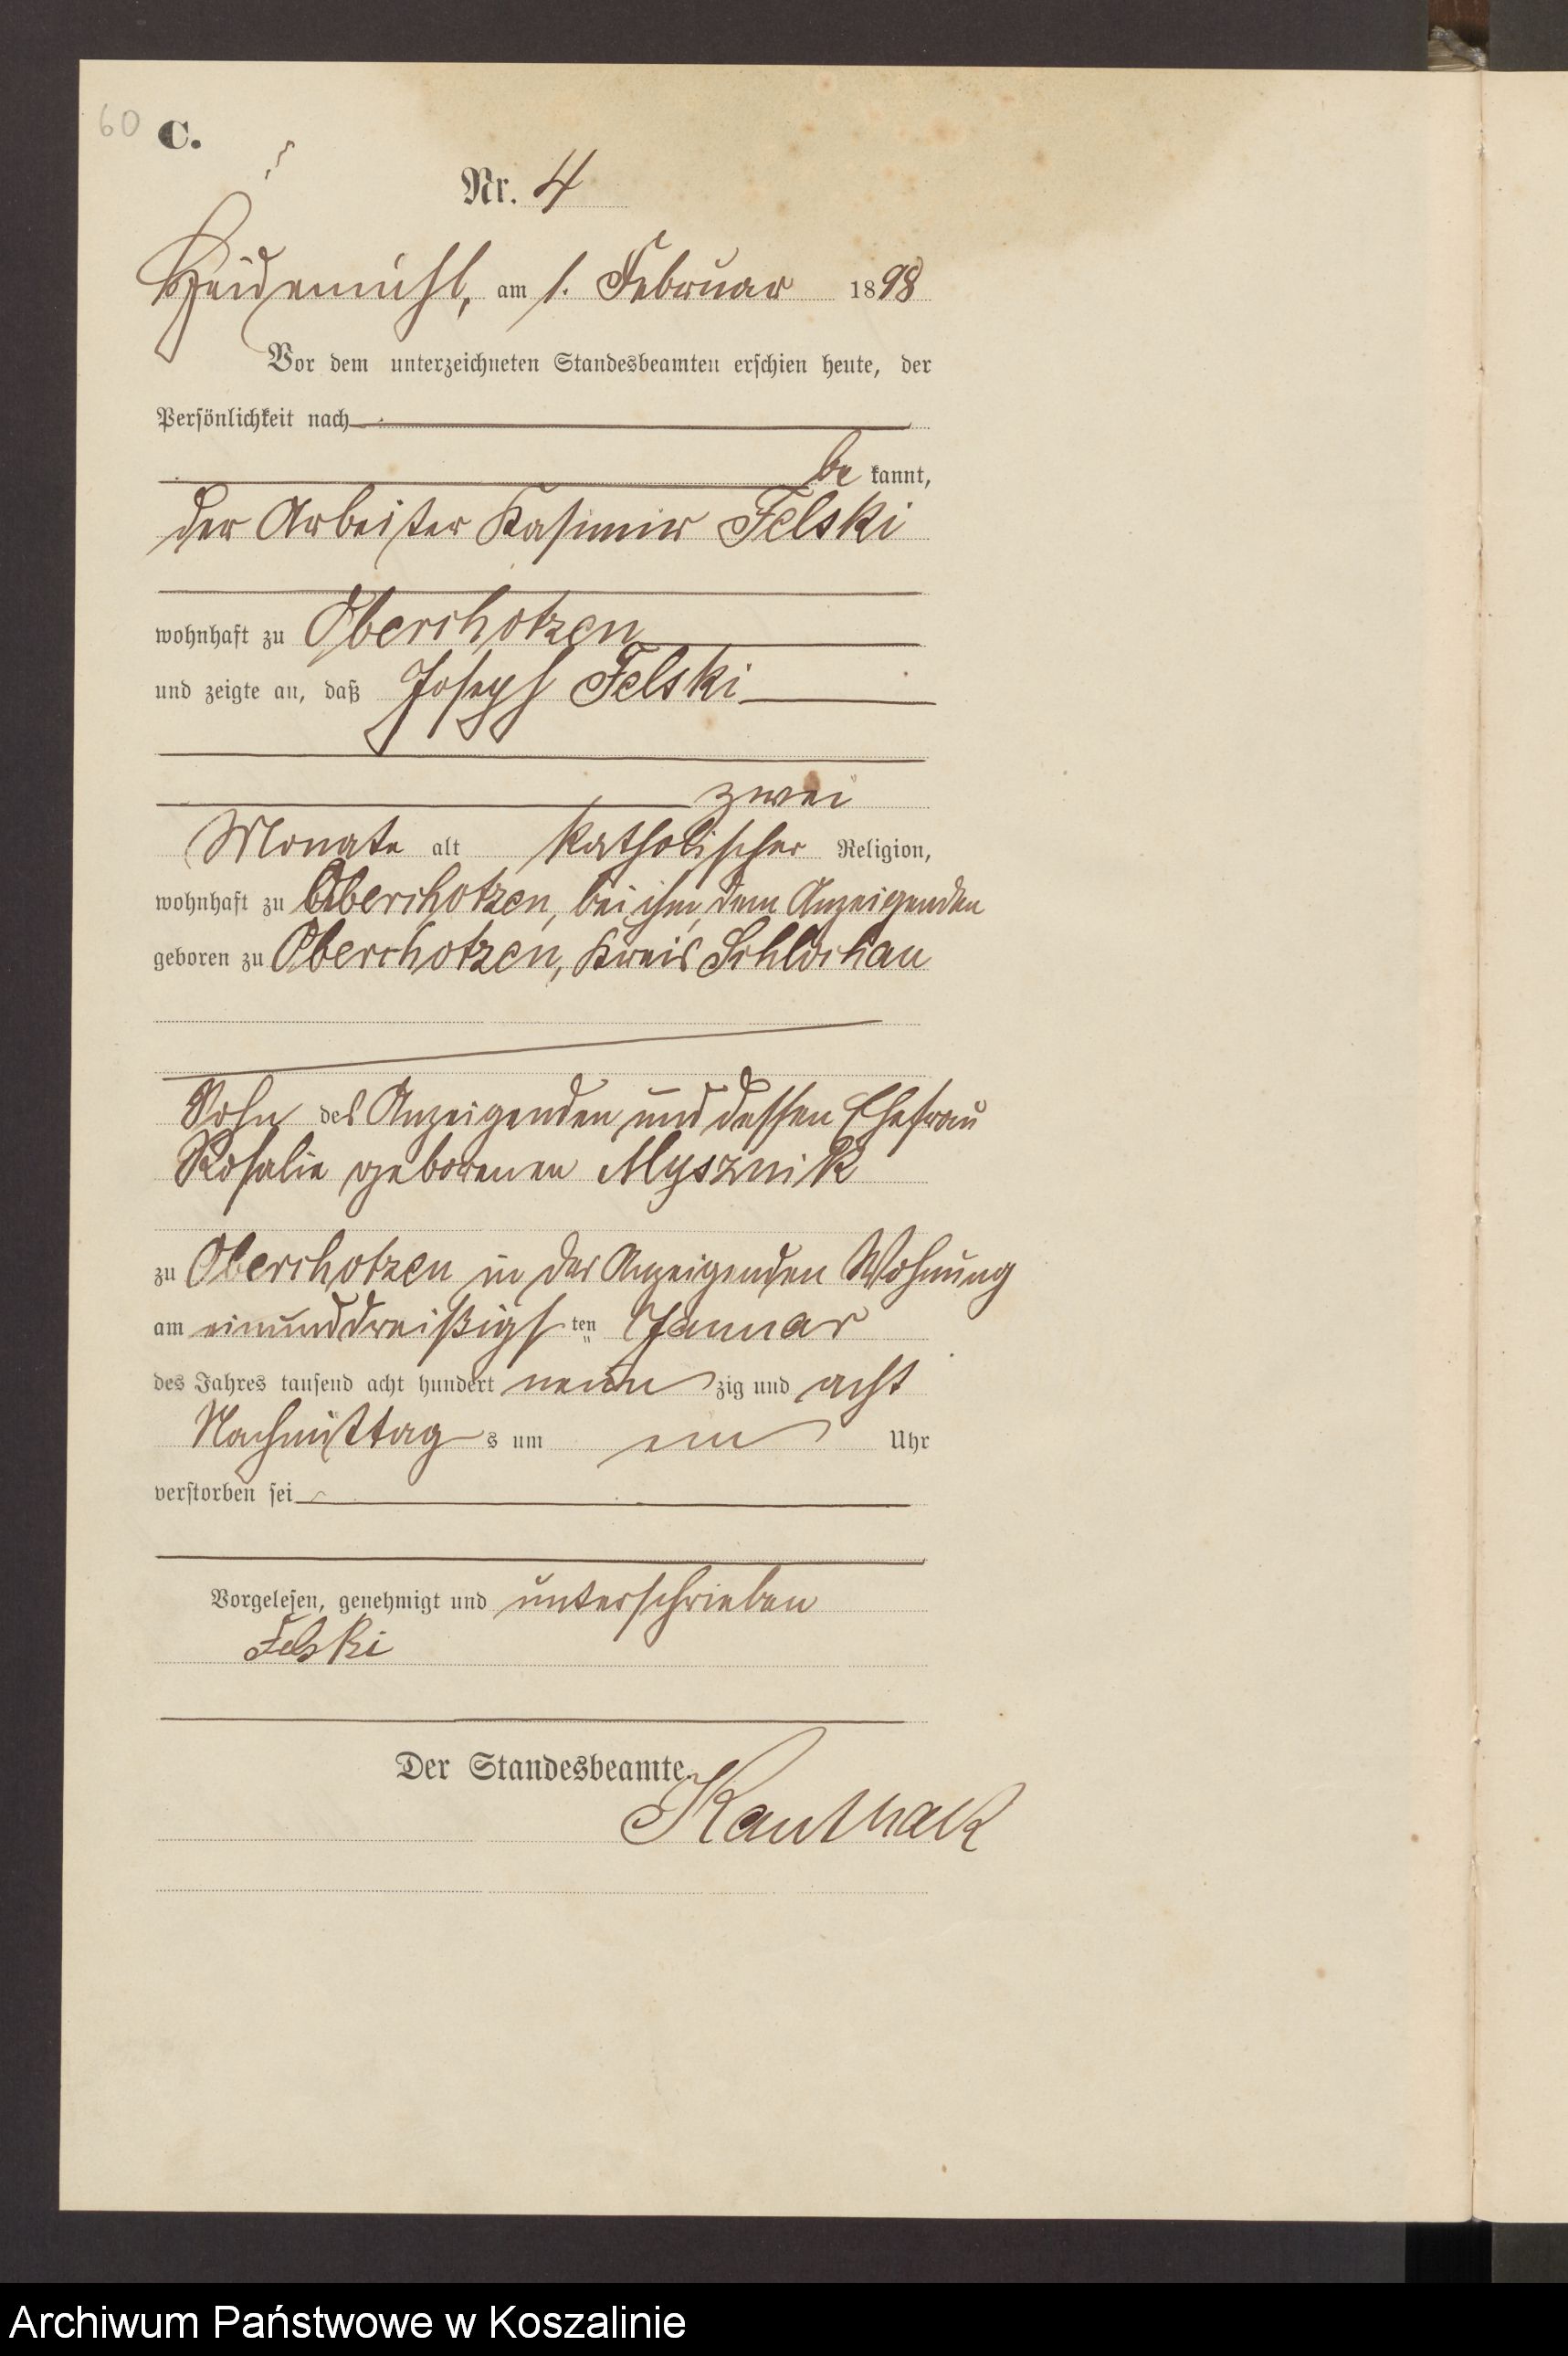 60
C.
Nr. 4
Heidemühl, am 1. Februar 1898
Vor dem unterzeichneten Standesbeamten erschien heute, der
Persönlichkeit nach
be kannt,
der Arbeiter Kasimir Felski
wohnhaft zu Oberchotzen
und zeigte an, daß Joseph Felski
zwei
Monate alt katholischer Religion,
wohnhaft zu Oberchotzen, bei ihm, dem Anzeigenden
geboren zu Oberchotzen, Kreis Schlochau
Sohn des Anzeigenden und dessen Ehefrau
Rosalie geborenen Mysznik
zu Oberchotzen in des Anzeigenden Wohnung
am einunddreißigsten Januar
des Jahres tausend acht hundert neunzig und acht
Nachmittags um ein Uhr
verstorben sei
Vorgelesen, genehmigt und unterschrieben
Felski
Der Standesbeamte.
Kauthack
Archiwum Państwowe w Koszalinie